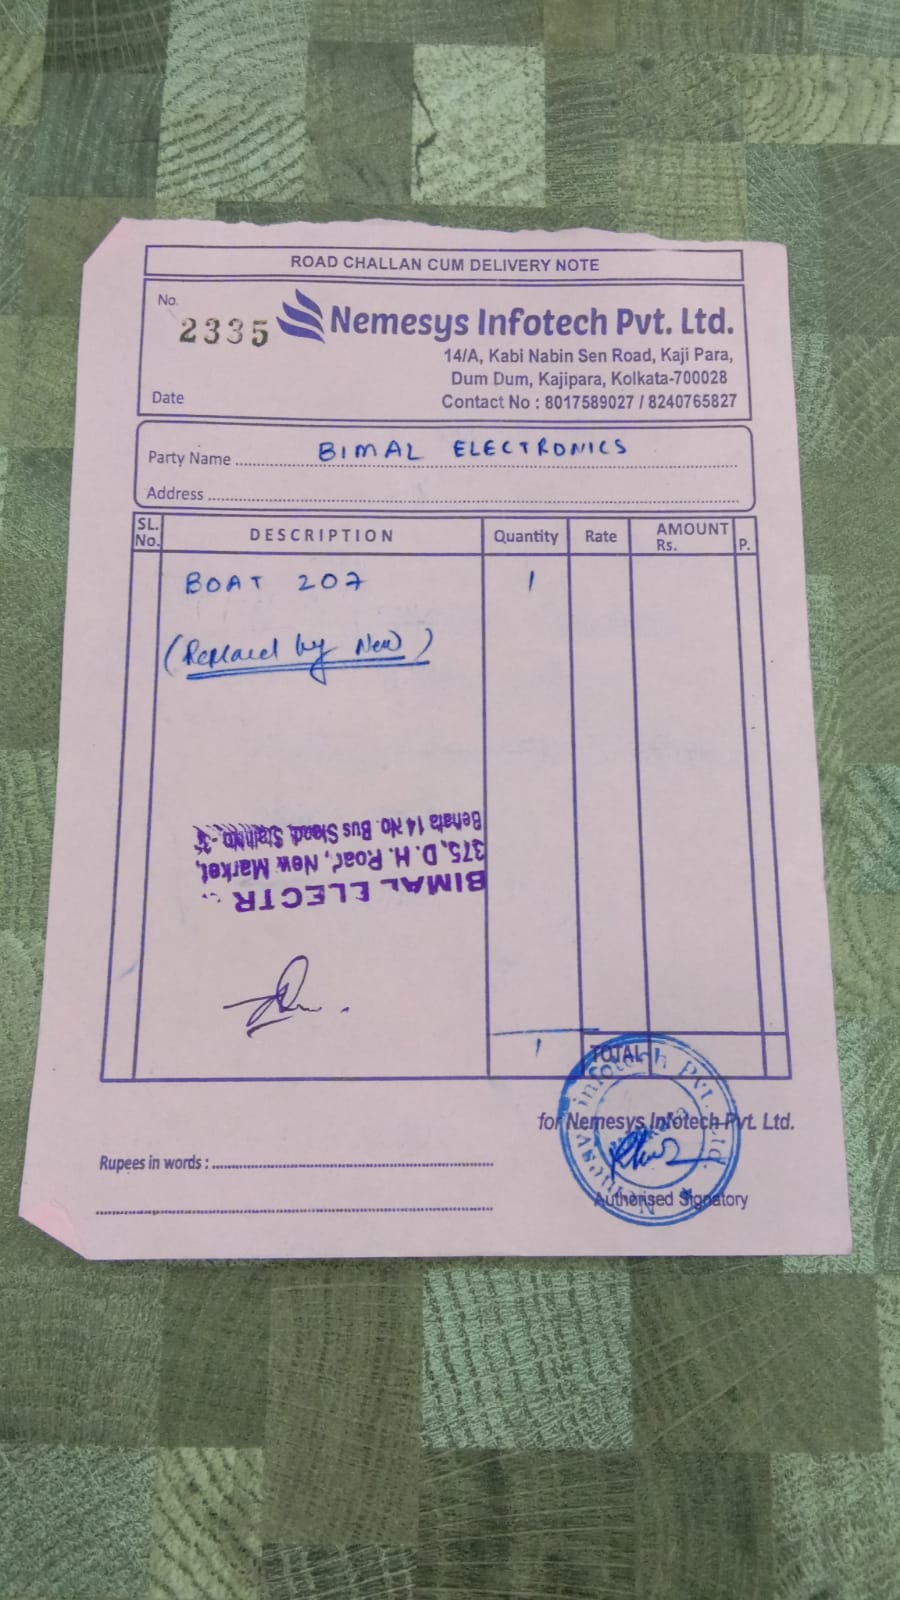 ROAD CHALLAN CUM DELIVERY NOTE
No.
2335
Nemesys Infotech Pvt. Ltd.
14/A, Kabi Nabin Sen Road, Kaji Para,
Dum Dum, Kajipara, Kolkata-700028
Date
Contact No : 8017589027 / 8240765827
Party Name BIMAL ELECTRONICS
Address
SL. No. DESCRIPTION Quantity Rate AMOUNT Rs. P.
BOAT 207 1
(Replaced by New)
BIMAL ELECTR
375, D. H. Road, New Market,
Behala 14 No. Bus Stand, Stall No.
1 TOTAL
for Nemesys Infotech Pvt. Ltd.
Rupees in words :
Nemesys Infotech Pvt. Ltd.
Authorised Signatory